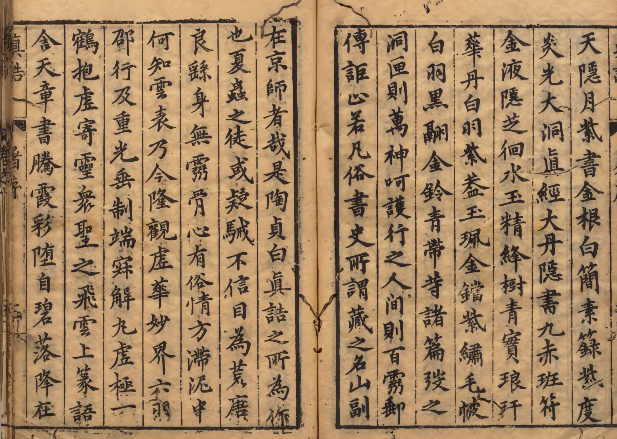 天隱月紫書金根白簡素籙紫度
炎光大洞眞經大丹隱書九赤班符
金液隱芝徊水玉精絳樹青實琅玕
華丹白羽紫蓋玉珮金鐺紫繡毛帔
白羽黑翮金鈴青帶等諸篇發之
洞匣則萬神呵護行之人間則百靈郵
傳詎止若凡俗書史所謂藏之名山副
在京師者哉是陶貞白眞誥之所為作
也夏蟲之徒或疑駴不信目為荒唐
良繇身無靈骨心有俗情方滯泥中
何知雲表乃今隆觀虛華妙界六羽
邵行及重光垂制端解九虛極一
鶴抱虛寄靈衆聖之飛雲上篆語
含天章書騰霞彩墮自碧落降在
真誥